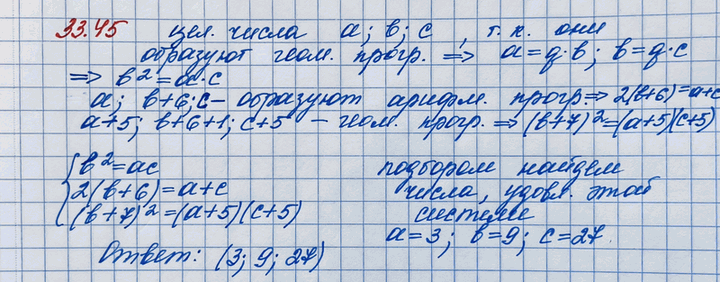 33.45 цел. числа а; в; с, т.к. они
образуют геом. прогр. => a=q·в; в=q·c
=> в²=a·c
а; в+6; с – образуют арифм. прогр. => 2(в+6)=а+с
а+5; в+6+1; с+5 – геом. прогр. => (в+7)²=(а+5)(с+5)
{ в²=ас
2(в+6)=а+с
(в+7)²=(а+5)(с+5)
подбором найдем
числа, удовл. этой
системе
а=3; в=9; с=27.
Ответ: (3; 9; 27)